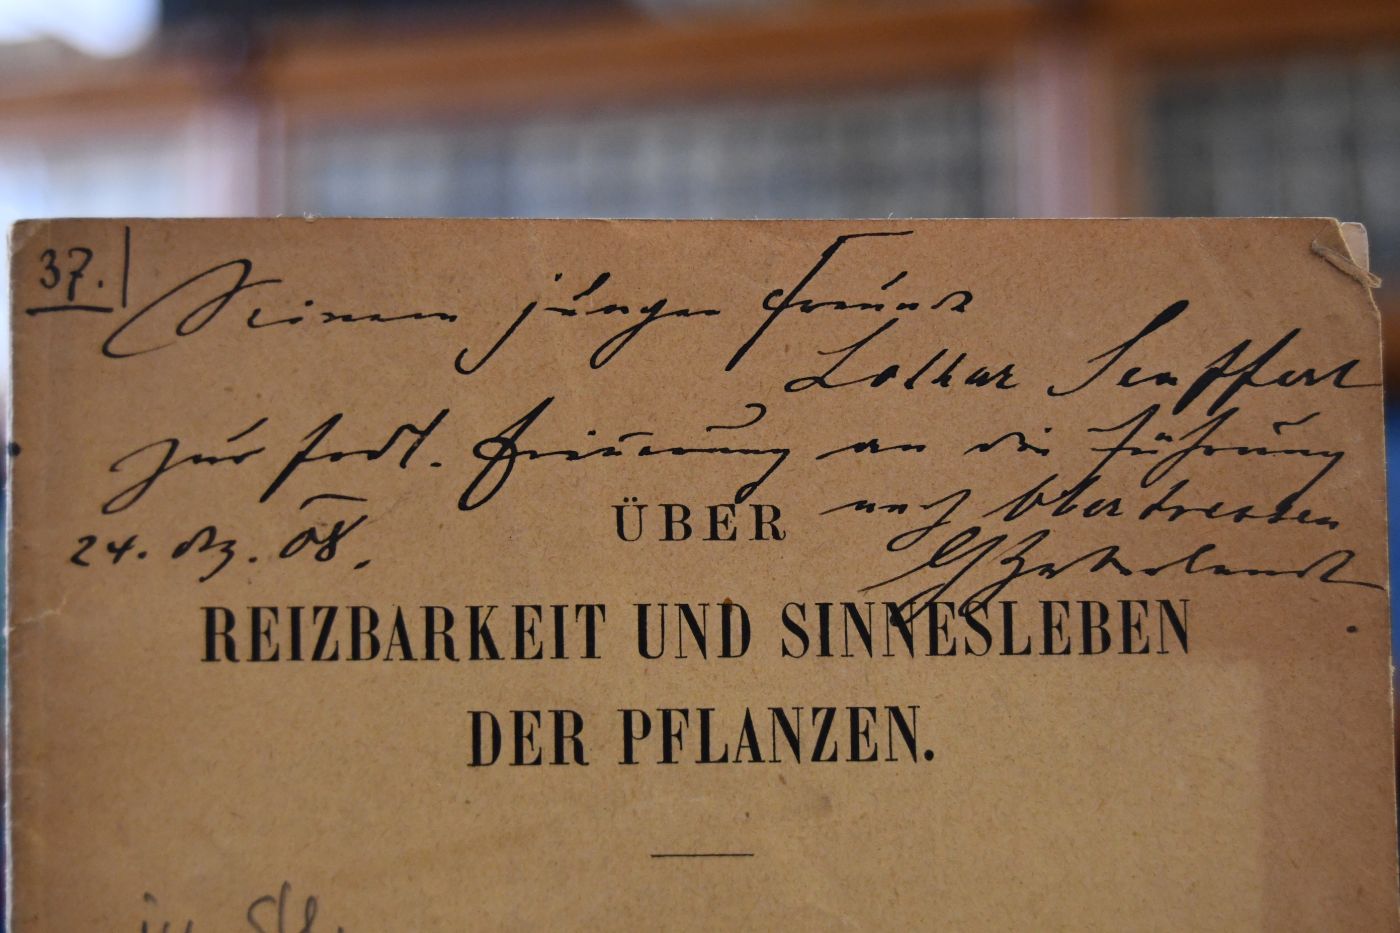 37.
Seinem jungen Freund
Lothar Seuffert
zur frdl. Erinnerung an die Führung
nach
24. Dez. 08.
G Haberlandt
ÜBER
REIZBARKEIT UND SINNESLEBEN
DER PFLANZEN.